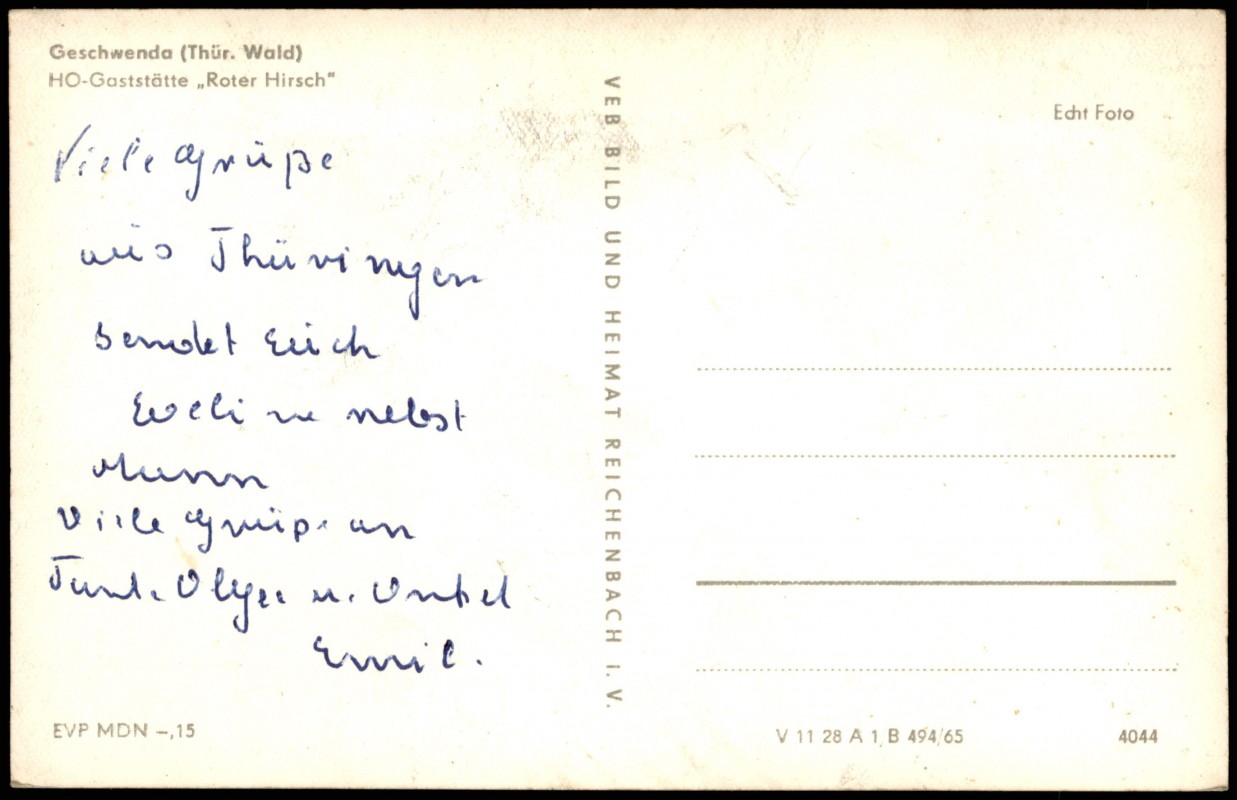 Geschwenda (Thür. Wald)
HO-Gaststätte „Roter Hirsch"
Viele Grüße
aus Thüringen
sendet Euch
Eveline nebst
Mann
Viele Grüße an
Tante Olga u. Onkel
Emil.
EVP MDN –,15
VEB BILD UND HEIMAT REICHENBACH I. V.
Echt Foto
V 11 28 A 1 B 494/65
4044